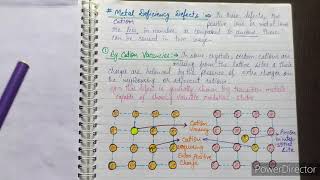 # Metal Deficiency Defects :- In these defects, the
cation positive ion or metal ions
are less in number as compared to anions. These
can be caused in two ways:-
① By Cation Vacancies:- In some crystals, certain cations are
missing from the lattice sites & their
charges are balanced by the presence of extra charges on
the neighbouring or adjacent
This defect is generally shown by transition metals
capable of show variable oxidation state
Cation
Vacancy
Cation
acquiring
Extra Positive
Charge
Anion
in inter
stitial
Site
PowerDirector